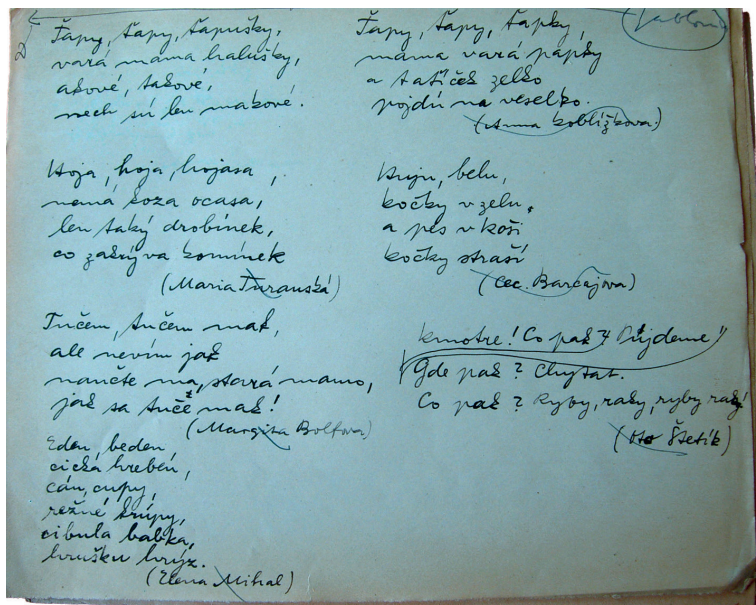 Ťapy, ťapy, ťapušky,
vará mama halušky,
akové, takové,
nech sú len makové.
Hoja, hoja, hojasa,
nemá koza ocasa,
len taký drobínek,
co zakrýva komínek
(Maria Turanská)
Tučem, tučem mak,
ale nevím jak
naučte ma, stará mamo,
jak sa tučě mak!
(Margita Bolfova)
Eden, beden
cická hrebén,
cán, cupy,
režné krúpy,
cibula babka,
hrušku hrýz.
(Elena Mihal)
Ťapy, ťapy, ťapky,
mama vará papky
a tatíček zelko
pojdú na veselko.
(Anna Koblížkova)
Huju, belu,
kočky v zelu,
a pes v koši
kočky straší
(Cec. Barčajova)
kmotre! Co pak? Půjdeme!
Gde pak? Chytat.
Co pak? Ryby, raky, ryby raky
(Oto Štetík)